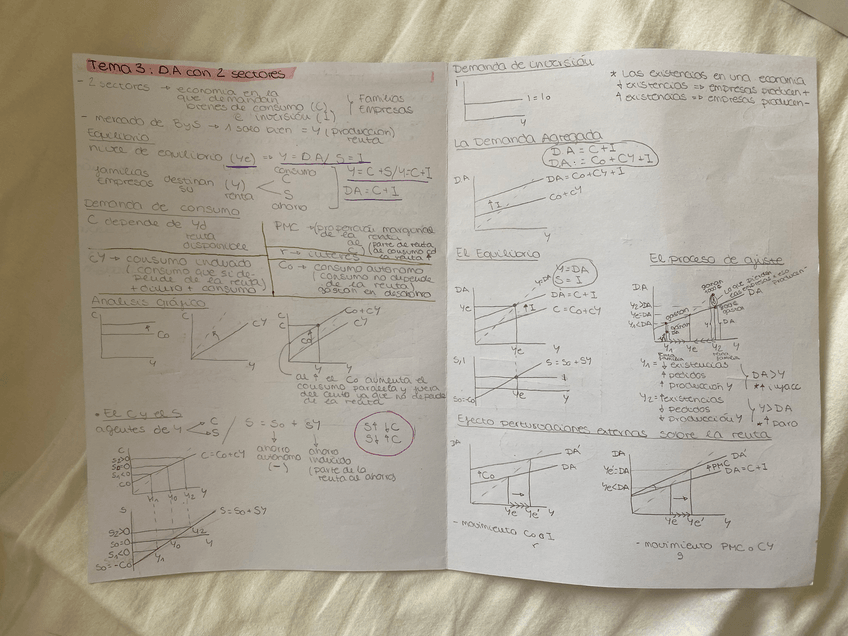 Tema 3: DA con 2 sectores
- 2 sectores → economía en la
que demandan
bienes de consumo (C)
e inversión (I)
Familias
Empresas
- mercado de ByS → 1 solo bien = Y (producción)
renta
Equilibrio
nivel de equilibrio (Ye) ⇒ Y = DA / S = I
familias
empresas destinan (Y)
su renta
consumo
C
S
ahorro
Y = C + S / Y = C + I
DA = C + I
Demanda de consumo
C depende de Yd
renta
disponible
PMC → (propensión marginal
de la renta
al C)
(parte de renta
al consumo cd
la renta ↑
r → interés
CY → consumo inducido
(consumo que sí de-
pende de la renta)
+ dinero + consumo
Co → consumo autónomo
(consumo no depende
de la renta)
Análisis Gráfico
C
Co
Y
CY
Y
C
C
Co
Co+CY
CY
Y
al ↑ el Co aumenta el
consumo paralela y fuera
del ceuto ya que no depende
de la renta
• El C y el S
agentes de Y
C
S
/ S = So + SY
ahorro
autónomo
(-)
ahorro
inducido
(parte de la
renta al ahorro)
S↑ ↓C
S↓ ↑C
C
Co
C=Co+CY
Y1 Yo Y2 Y
S
S2>0
So=0
S1<0
So=-Co
S=So+SY
Y2
Yo
Y1
Y
Demanda de inversión
I
I = Io
* Las existencias en una economía
↓ existencias ⇒ empresas producen +
↑ existencias ⇒ empresas producen -
La Demanda Agregada
DA = C + I
DA := Co + CY + I
DA
DA = Co + CY + I
Co + CY
↑I
Y
El Equilibrio
Y = DA
S = I
DA
Ye
Y=DA
DA = C + I
C = Co+CY
↑I
Ye
Y
S,I
S = So + SY
I
So=-Co
Ye
Y
El proceso de ajuste
DA
Y2>DA
Ye=DA
Y1<DA
DA
Y1 Ye Y2 Y
Y1 = ↓ existencias
↑ pedidos
↑ producción Y
DA > Y
Y2 = ↑ existencias
↓ pedidos
↓ producción Y
Y > DA
↑ paro
Efecto perturbaciones externas sobre la renta
DA
DA'
DA
↑Co
Ye Ye' Y
- movimiento Co o I
r
DA
Ye'=DA
Ye<DA
DA'
↑PMC
DA=C+I
Ye Ye' Y
- movimiento PMC o CY
g